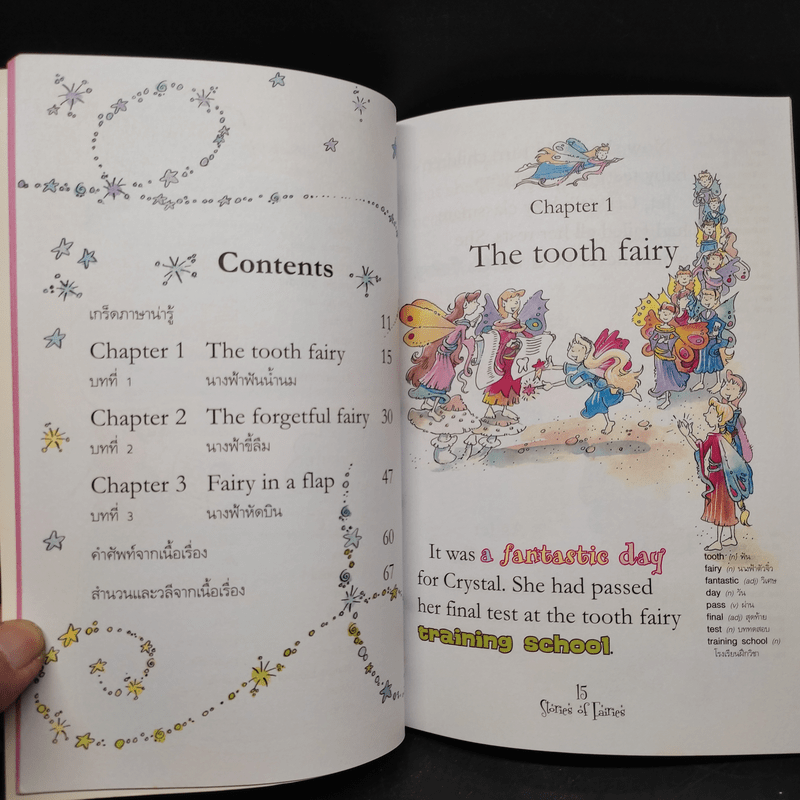 Contents
เกร็ดภาษาน่ารู้ 11
Chapter 1 The tooth fairy 15
บทที่ 1 นางฟ้าฟันน้ำนม
Chapter 2 The forgetful fairy 30
บทที่ 2 นางฟ้าขี้ลืม
Chapter 3 Fairy in a flap 47
บทที่ 3 นางฟ้าหัดบิน
คำศัพท์จากเนื้อเรื่อง 60
สำนวนและวลีจากเนื้อเรื่อง 67
Chapter 1
The tooth fairy
It was a fantastic day
for Crystal. She had passed
her final test at the tooth fairy
training school.
tooth (n) ฟัน
fairy (n) นางฟ้าตัวจิ๋ว
fantastic (adj) วิเศษ
day (n) วัน
pass (v) ผ่าน
final (adj) สุดท้าย
test (n) บททดสอบ
training school (n)
โรงเรียนฝึกวิชา
15
Stories of Fairies